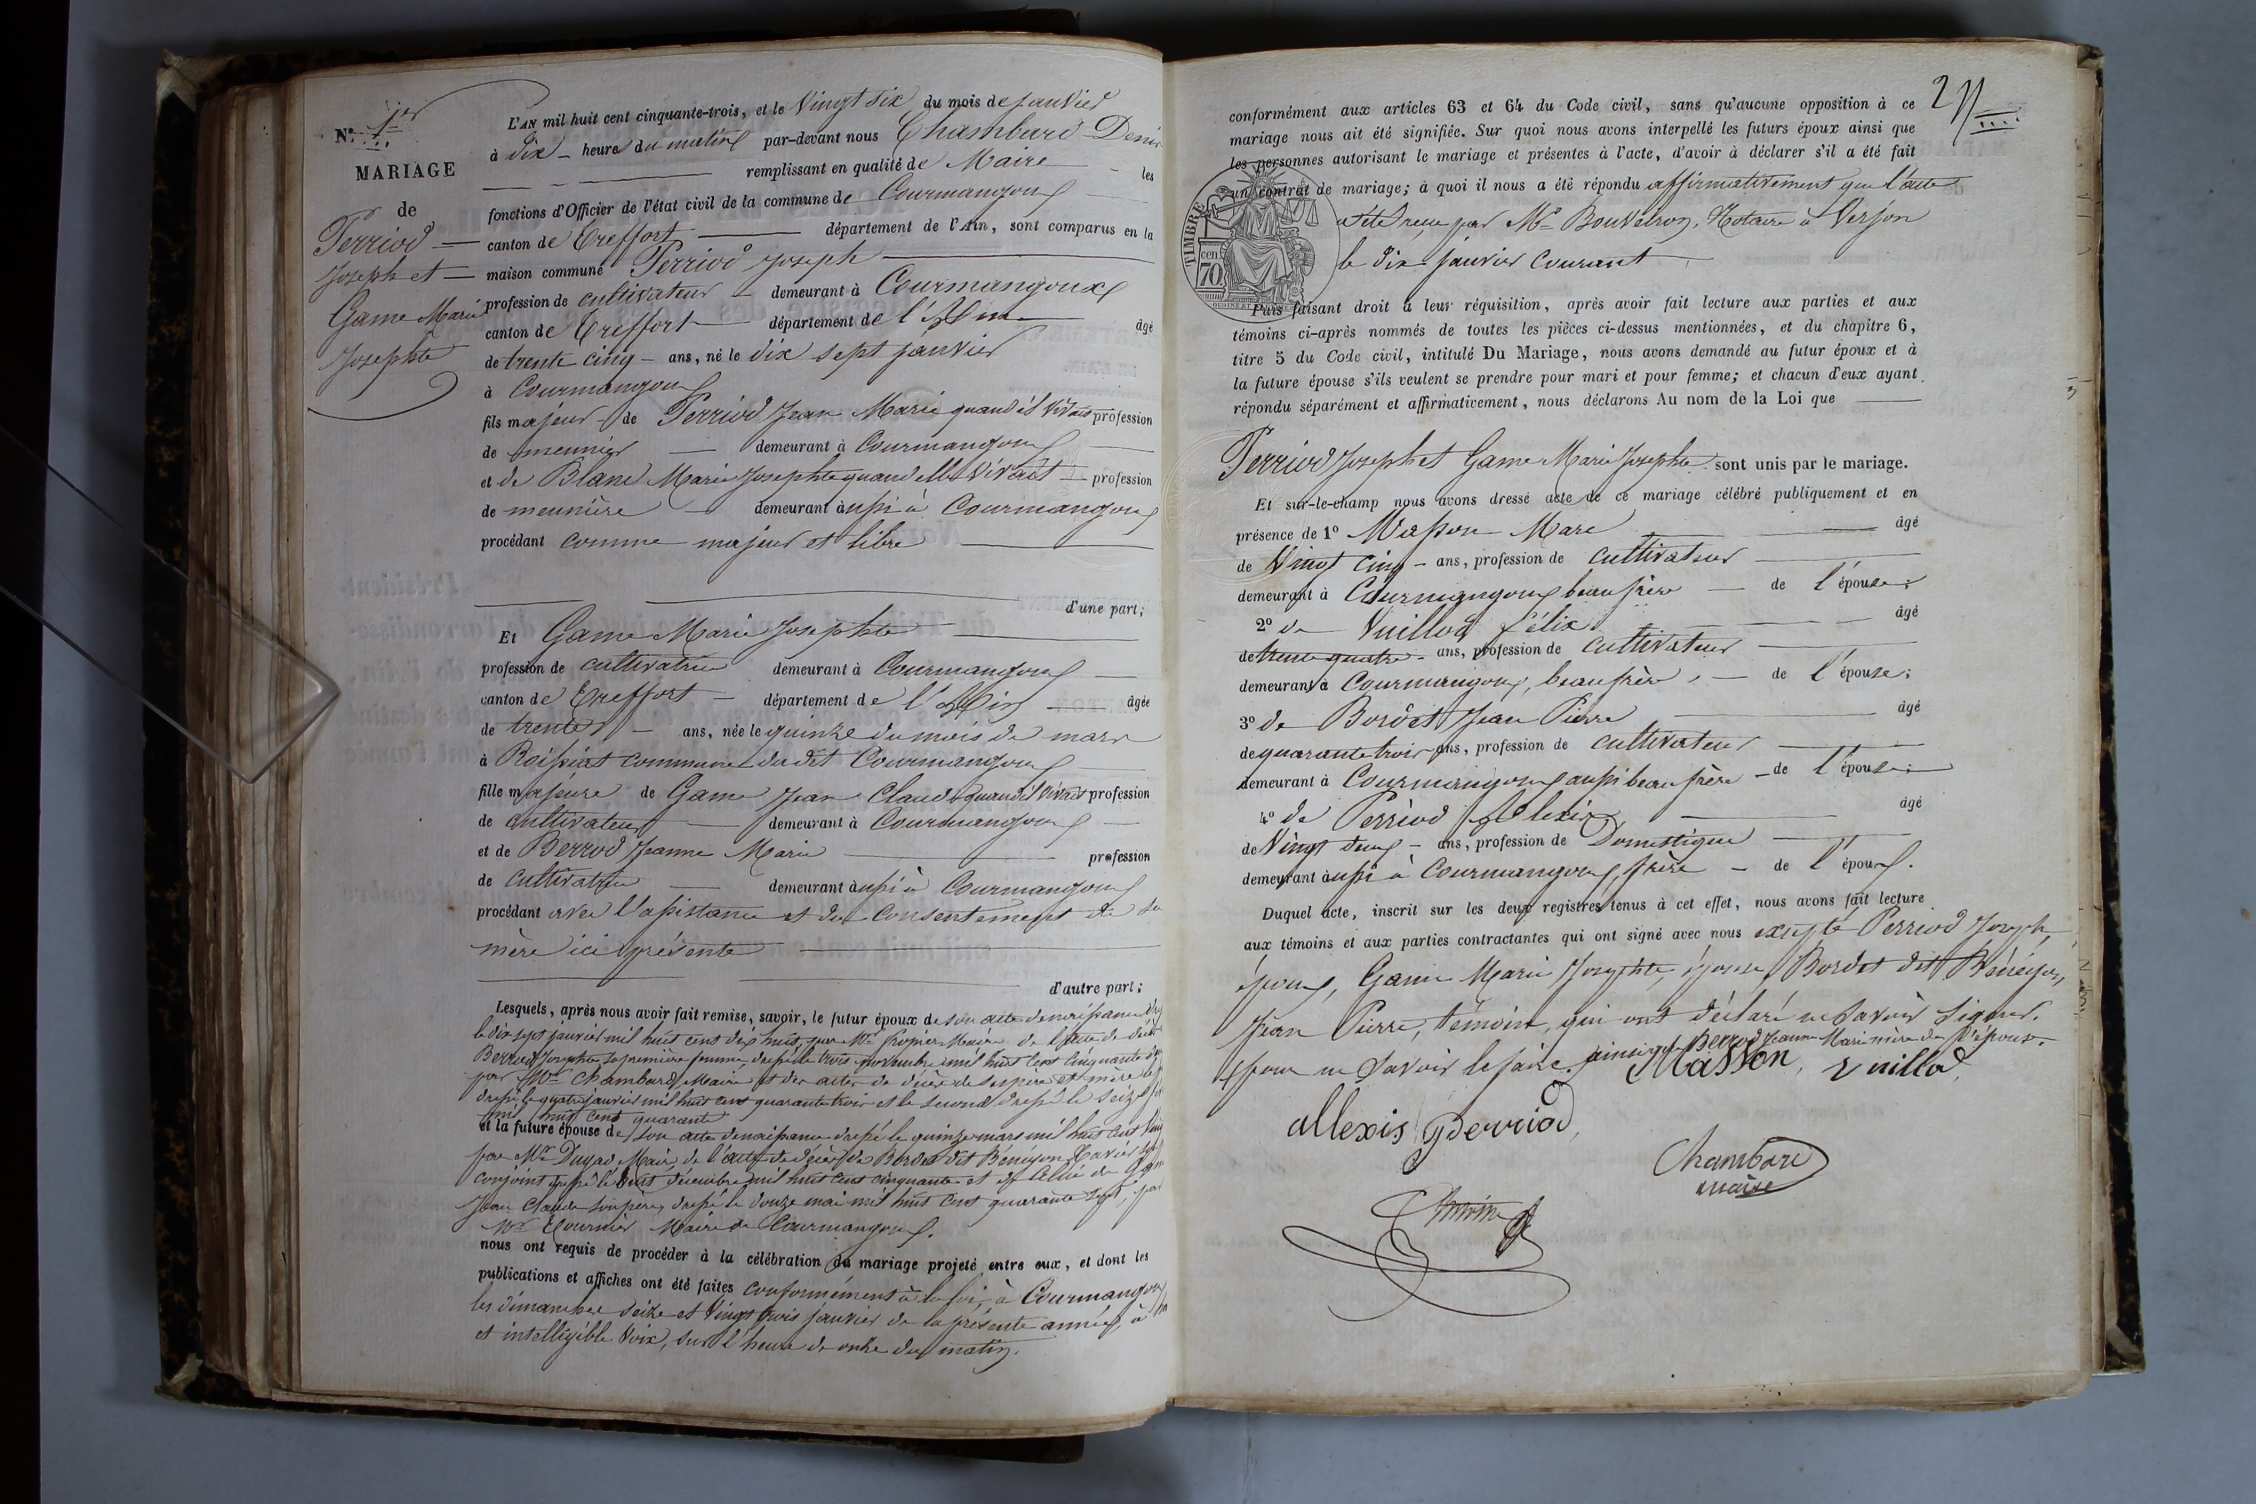 N.° 1er
MARIAGE
de
Perriod
Joseph et
Game Marie
Josephte
L'AN mil huit cent cinquante-trois, et le Vingt six du mois de Janvier
à dix heures du matin par-devant nous Chambard Denis
remplissant en qualité de Maire les
fonctions d'Officier de l'état civil de la commune de Courmangoux
canton de Treffort département de l'Ain, sont comparus en la
maison commune Perriod Joseph
profession de cultivateur demeurant à Courmangoux
canton de Treffort département de l'Ain âgé
de trente cinq ans, né le dix sept janvier
à Courmangoux
fils majeur de Perriod Jean Marie quand il vivait profession
de meunier demeurant à Courmangoux
et de Blanc Marie Josephte quand elle vivait profession
de meunière demeurant aussi à Courmangoux
procédant comme majeur et libre
d'une part;
Et Game Marie Josephte
profession de cultivatrice demeurant à Courmangoux
canton de Treffort département de l'Ain âgée
de trente ans, née le quinze du mois de mars
à Roissiat commune du dit Courmangoux
fille majeure de Game Jean Claude quand il vivait profession
de cultivateur demeurant à Courmangoux
et de Berrod Jeanne Marie profession
de cultivatrice demeurant aussi à Courmangoux
procédant avec l'assistance et du consentement de sa
mère ici présente
d'autre part;
Lesquels, après nous avoir fait remise, savoir, le futur époux de son acte de naissance
le dix sept janvier mil huit cent dix huit, par Mr Maire de l'acte de décès
Berrod Josephte sa première femme, dressé le trois novembre mil huit cent cinquante
par Mr Chambard Maire et des actes de décès de ses père et mère le
dressé le quatre janvier mil huit cent quarante trois et le second dressé le seize
mil huit cent quarante
et la future épouse de son acte de naissance dressé le quinze mars mil huit cent
par Mr Dugad Maire de l'acte de décès de Bordet dit Benéyon Xavier
conjoint dressé le huit décembre mil huit cent cinquante et de celui de Game
Jean Claude son père, dressé le douze mai mil huit cent quarante sept, par
Mr Tournier Maire de Courmangoux.
nous ont requis de procéder à la célébration du mariage projeté entre eux, et dont les
publications et affiches ont été faites conformément à la loi, à Courmangoux
les dimanches seize et vingt trois janvier de la présente année, à
et intelligible voix, sur l'heure de onze du matin.
2
conformément aux articles 63 et 64 du Code civil, sans qu'aucune opposition à ce
mariage nous ait été signifiée. Sur quoi nous avons interpellé les futurs époux ainsi que
les personnes autorisant le mariage et présentes à l'acte, d'avoir à déclarer s'il a été fait
un contrat de mariage; à quoi il nous a été répondu affirmativement que l'acte
a été reçu par Me Bouvelron, Notaire à Verjon
le dix janvier courant
TIMBRE
cen.
70
Puis faisant droit à leur réquisition, après avoir fait lecture aux parties et aux
témoins ci-après nommés de toutes les pièces ci-dessus mentionnées, et du chapitre 6,
titre 5 du Code civil, intitulé Du Mariage, nous avons demandé au futur époux et à
la future épouse s'ils veulent se prendre pour mari et pour femme; et chacun d'eux ayant
répondu séparément et affirmativement, nous déclarons Au nom de la Loi que
Perriod Joseph et Game Marie Josephte sont unis par le mariage.
Et sur-le-champ nous avons dressé acte de ce mariage célébré publiquement et en
présence de 1° Masson Marc âgé
de Vingt cinq ans, profession de cultivateur
demeurant à Courmangoux beau frère de l'épouse;
2° de Vuillod Félix âgé
de trente quatre ans, profession de cultivateur
demeurant à Courmangoux, beau frère, de l'épouse;
3° de Bordet Jean Pierre âgé
de quarante trois ans, profession de cultivateur
demeurant à Courmangoux aussi beau frère de l'épouse;
4° de Perriod Alexis âgé
de Vingt deux ans, profession de Domestique
demeurant aussi à Courmangoux, frère de l'époux.
Duquel acte, inscrit sur les deux registres tenus à cet effet, nous avons fait lecture
aux témoins et aux parties contractantes qui ont signé avec nous excepté Perriod Joseph,
époux, Game Marie Josephte, épouse, Bordet dit Benéyon,
Jean Pierre, témoin, qui ont déclaré ne savoir signer.
pour ne savoir le faire. ainsi que Berrod Jeanne Marie mère de l'épouse.
Masson, Vuillod
allexis perriod,
Chambard
maire